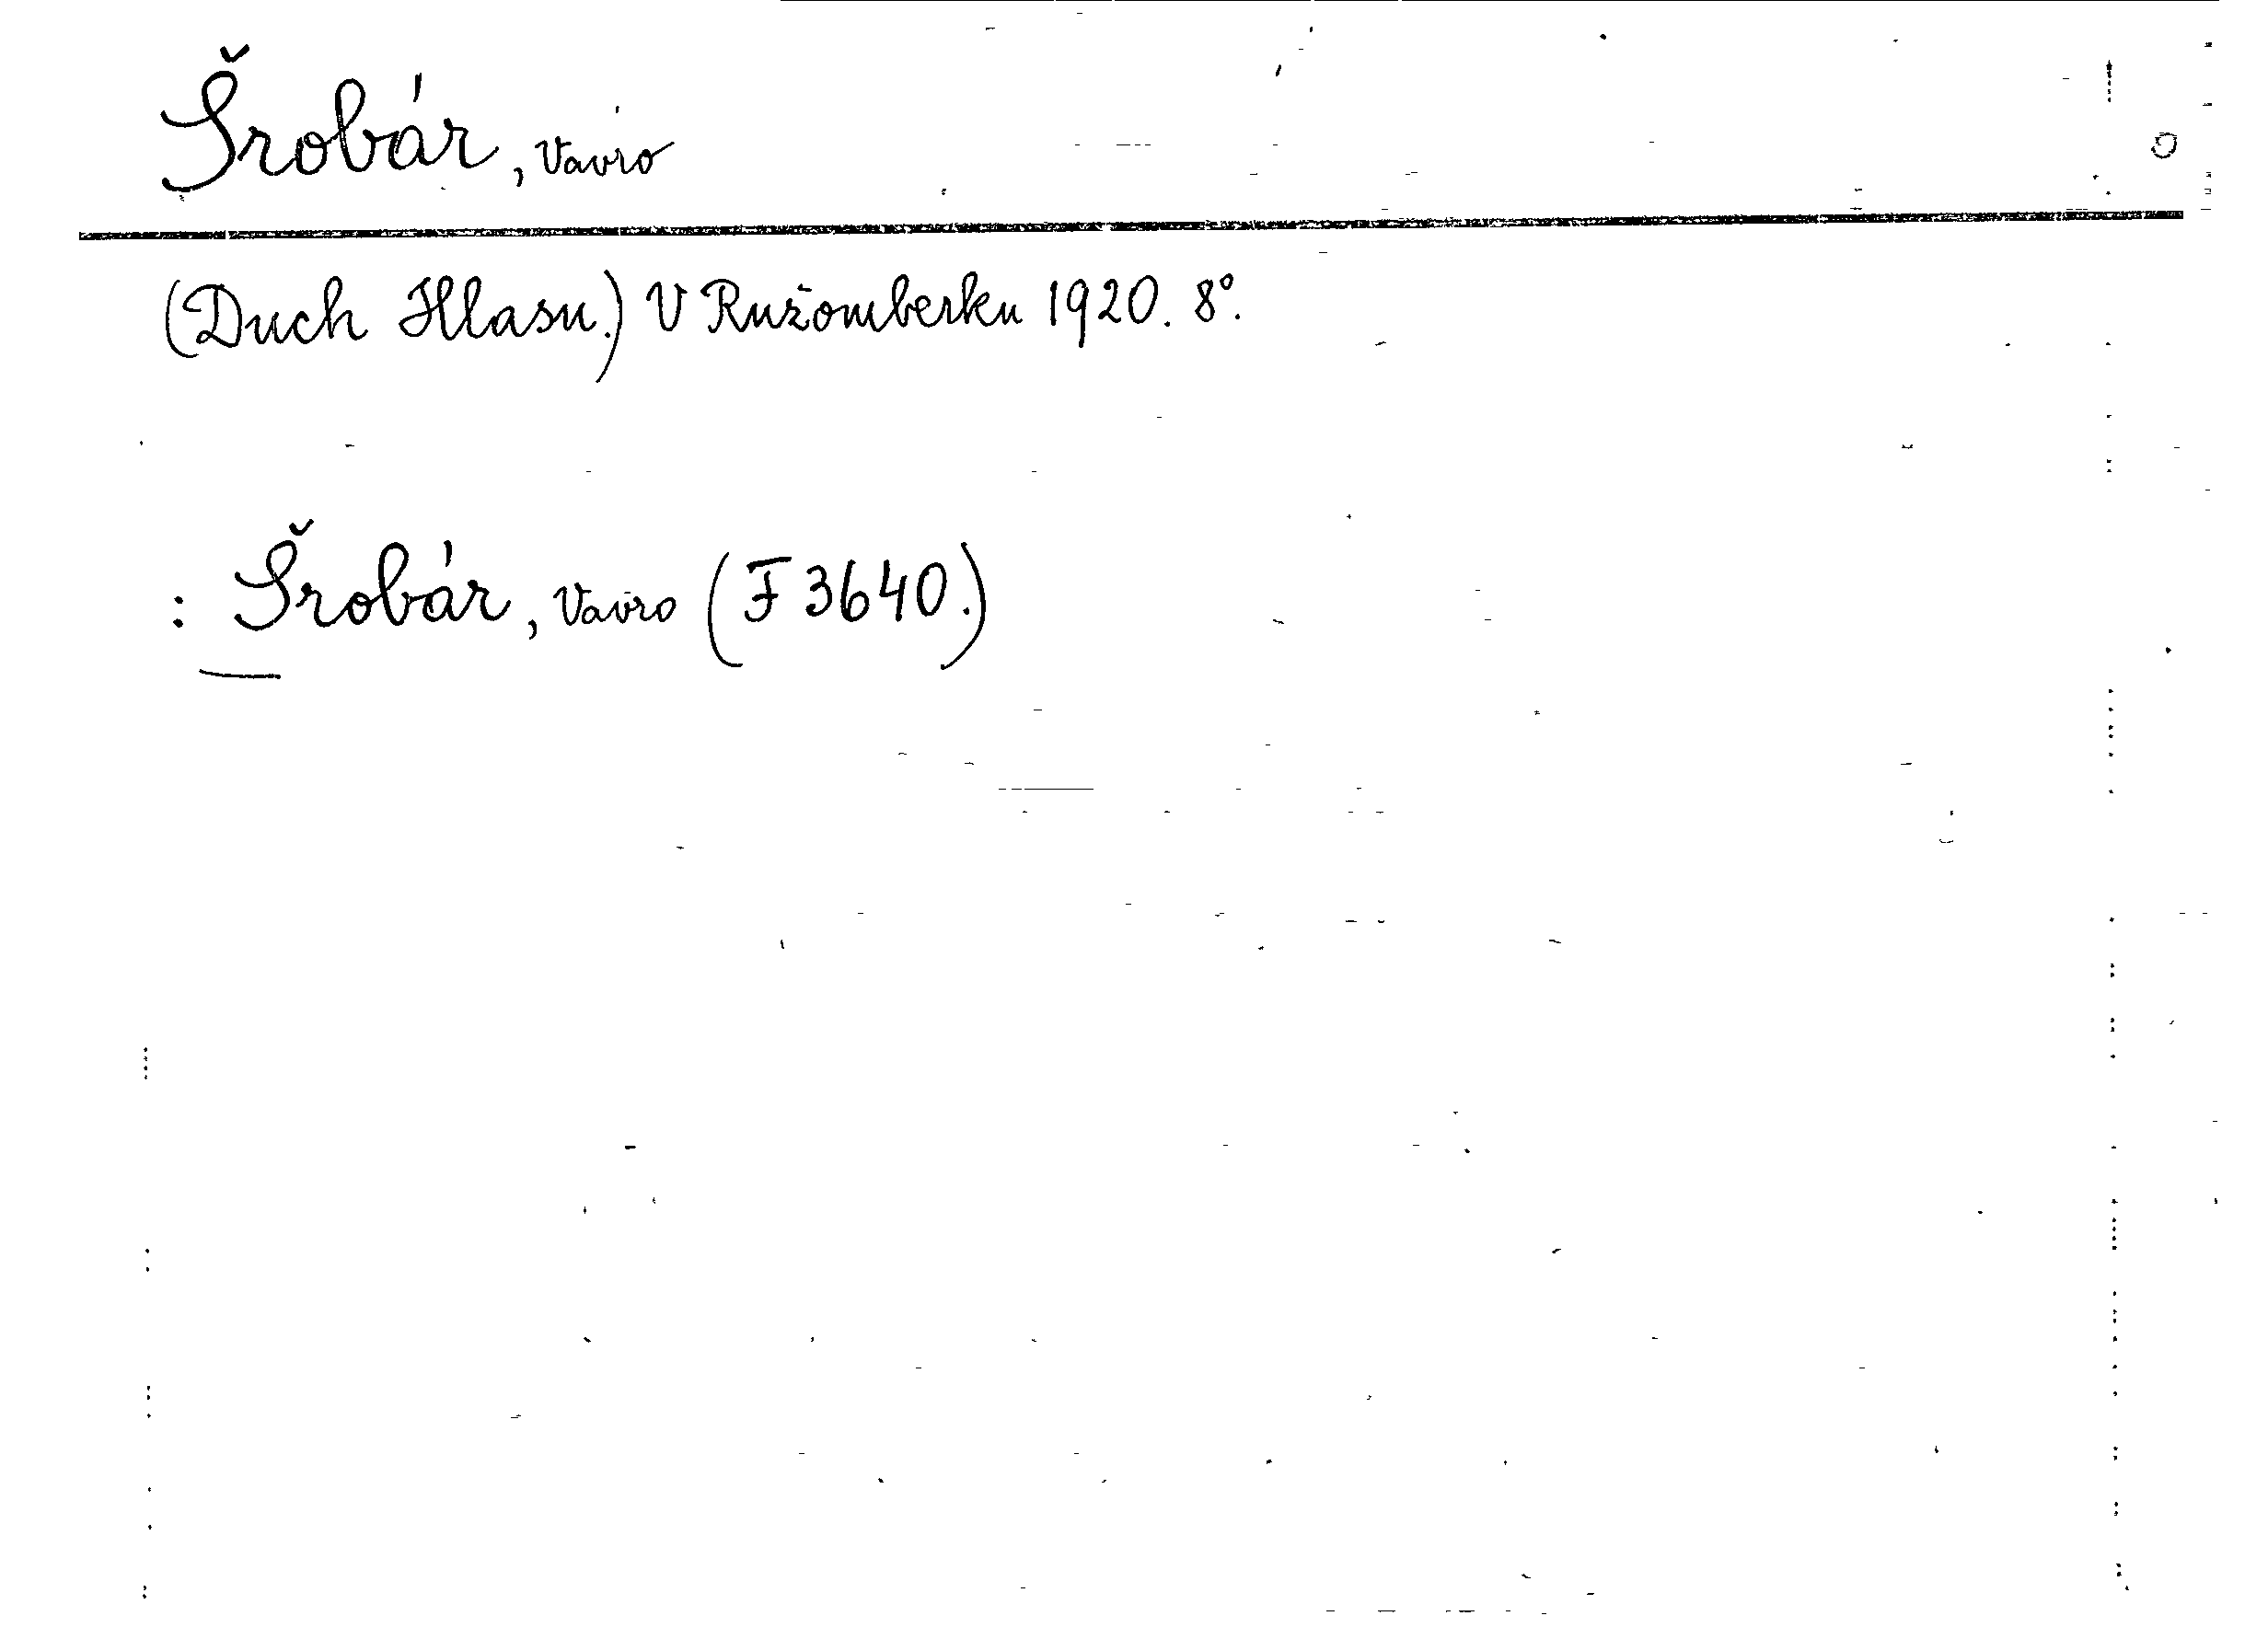 Šrobár, Vavro
(Duch Hlasu.) V Ružomberku 1920. 8°.
: Šrobár, Vavro (F 3640.)